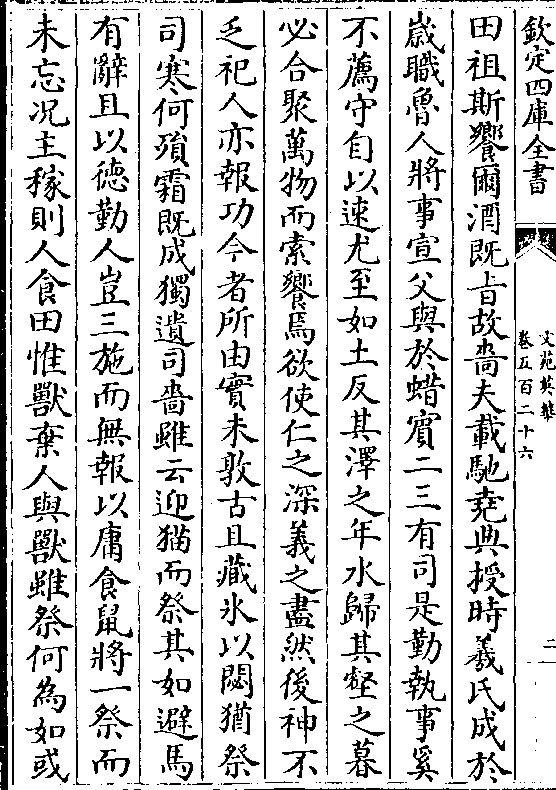 欽定四庫全書
文苑英華
卷五百二十六
二
田祖斯饗爾酒既㫖故嗇夫載馳堯典授時羲氏成於
嵗職魯人將事宣父與於蜡賓二三有司是勤執事奚
不薦守自以速尤至如土反其澤之年水歸其壑之暮
必合聚萬物而索饗焉欲使仁之深義之盡然後神不
乏祀人亦報功今者所由實未敦古且藏氷以閟猶祭
司寒何殞霜既成獨遺司嗇雖云迎猫而祭其如避馬
有辭且以徳勤人豈三施而無報以庸食鼠將一祭而
未忘况主稼則人食田惟獸棄人與獸雖祭何為如或